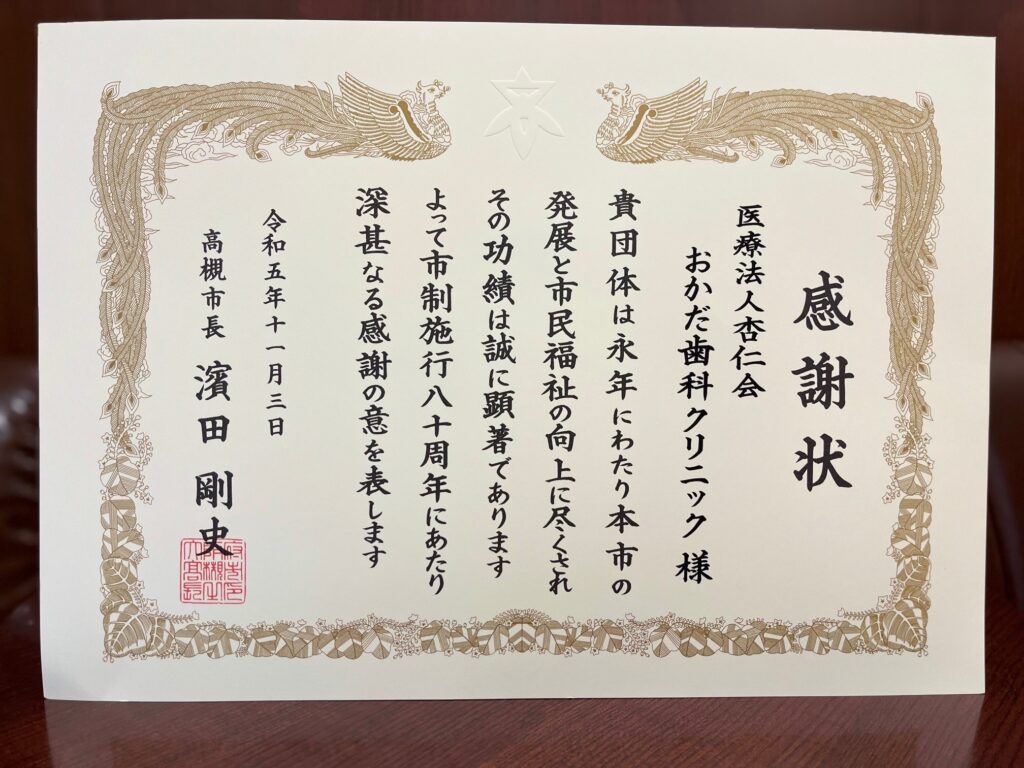 感謝状
医療法人杏仁会
おかだ歯科クリニック 様
貴団体は永年にわたり本市の
発展と市民福祉の向上に尽くされ
その功績は誠に顕著であります
よって市制施行八十周年にあたり
深甚なる感謝の意を表します
令和五年十一月三日
高槻市長 濱田 剛史